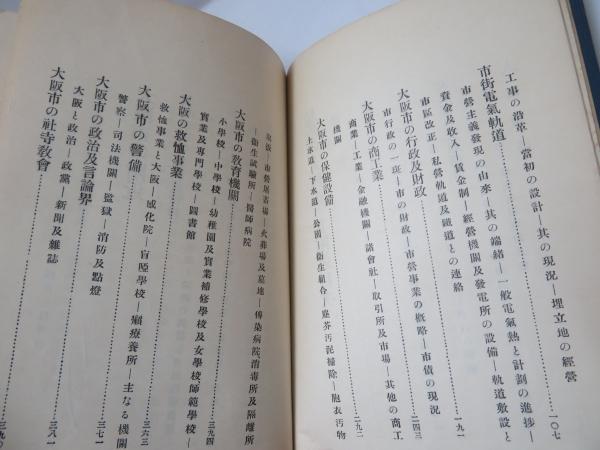 工事の沿革—當初の設計—其の現況—埋立地の經營
一〇七
市街電氣軌道
市營主義發現の由來—其の端緖—一般電氣熱と計劃の進捗—
資金及收入—賃金制—經營機關及發電所の設備—軌道敷設と
市區改正—私營軌道及鐵道との連絡
一九一
大阪市の行政及財政
市行政の一斑—市の財政—市營事業の槪略—市債の現況
二四三
大阪市の商工業
商業—工業—金融機關—諸會社—取引所及市場—其他の商工
機關
大阪市の保健設備
上水道—下水道—公園—衞生組合—塵芥汚泥掃除—胞衣汚物
—市營屠畜場—火葬場及墓地—傳染病院消毒所及隔離所
—衞生試驗所—醫師病院
大阪市の敎育機關
小學校—中學校—幼稚園及實業補修學校及女學校、師範學校—
實業及專門學校—圖書館
三九四
大阪の救恤事業
救恤事業と大阪—感化院—盲啞學校—癩療養所—主なる機關
三六三
大阪市の警備
警察—司法機關—監獄—消防及點燈
三七一
大阪市の政治及言論界
大阪と政治—政黨—新聞及雜誌
三八一
大阪市の社寺敎會
三九〇